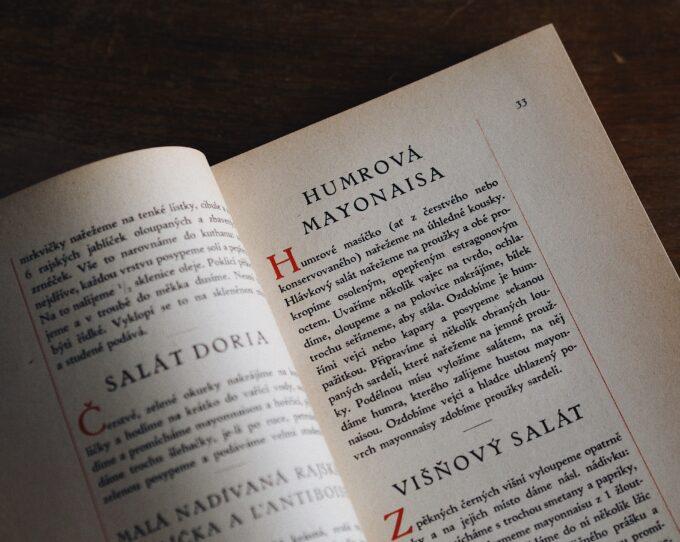 mrkvičky nařežeme na tenké lístky, cibule
6 rajských jablíček oloupaných a zbavených
zrnéček. Vše to narovnáme do kuthanu,
nejdříve, každou vrstvu posypeme solí a
Na to nalijeme ½ sklenice oleje. Poklicí
jeme a v troubě do měkka dusíme.
býti řídké. Vyklopí se to na skleněnou
a studené podává.
SALÁT DORIA
Čerstvé, zelené okurky nakrájíme na
líčky a hodíme na krátko do vařící vody,
díme a promícháme mayonnaisou a hořčicí,
dáme trochu šlehačky, je-li po ruce,
zelenou posypeme a podáváme velmi
MALÁ NADÍVANÁ
A L'ANTIBOISE
33
HUMROVÁ
MAYONAISA
Humrové masíčko (ať z čerstvého nebo
konservovaného) nařežeme na úhledné kousky.
Hlávkový salát nařežeme na proužky a obé pro-
kropíme osoleným, opepřeným estragonovým
octem. Uvaříme několik vajec na tvrdo, ochla-
díme, oloupeme a na polovice nakrájíme, bílek
trochu seřízneme, aby stála. Ozdobíme je hum-
řími vejci nebo kapary a posypeme sekanou
pažitkou. Připravíme si několik obraných lou-
paných sardelí, které nařežeme na jemné prouž-
ky. Podélnou mísu vyložíme salátem, na něj
dáme humra, kterého zalijeme hustou mayon-
naisou. Ozdobíme vejci a hladce uhlazený po-
vrch mayonnaisy zdobíme proužky sardelí.
VIŠŇOVÝ SALÁT
Z pěkných černých višní vyloupeme opatrně
a na jejich místo dáme násl. nádivku:
s trochou smetany a papriky,
mayonnaisu z 1 žlout-
dáme do ní několik lžic
prášku a